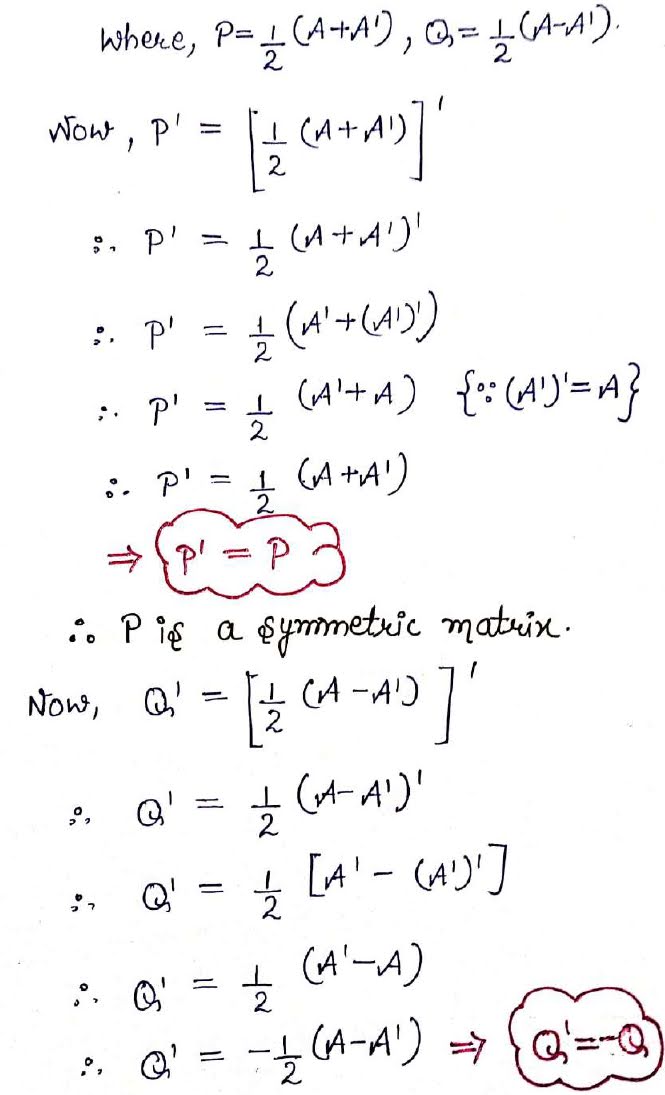 Where, P=1/2(A+A'), Q=1/2(A-A').
Now, P' = [1/2 (A+A')]'
∴ P' = 1/2 (A+A')'
∴ P' = 1/2 (A'+(A')')
∴ P' = 1/2 (A'+A) {∵ (A')'=A}
∴ P' = 1/2 (A+A')
⇒ P' = P
∴ P is a symmetric matrix.
Now, Q' = [1/2 (A-A')]'
∴ Q' = 1/2 (A-A')'
∴ Q' = 1/2 [A' - (A')']
∴ Q' = 1/2 (A'-A)
∴ Q' = -1/2 (A-A') ⇒ Q'=-Q